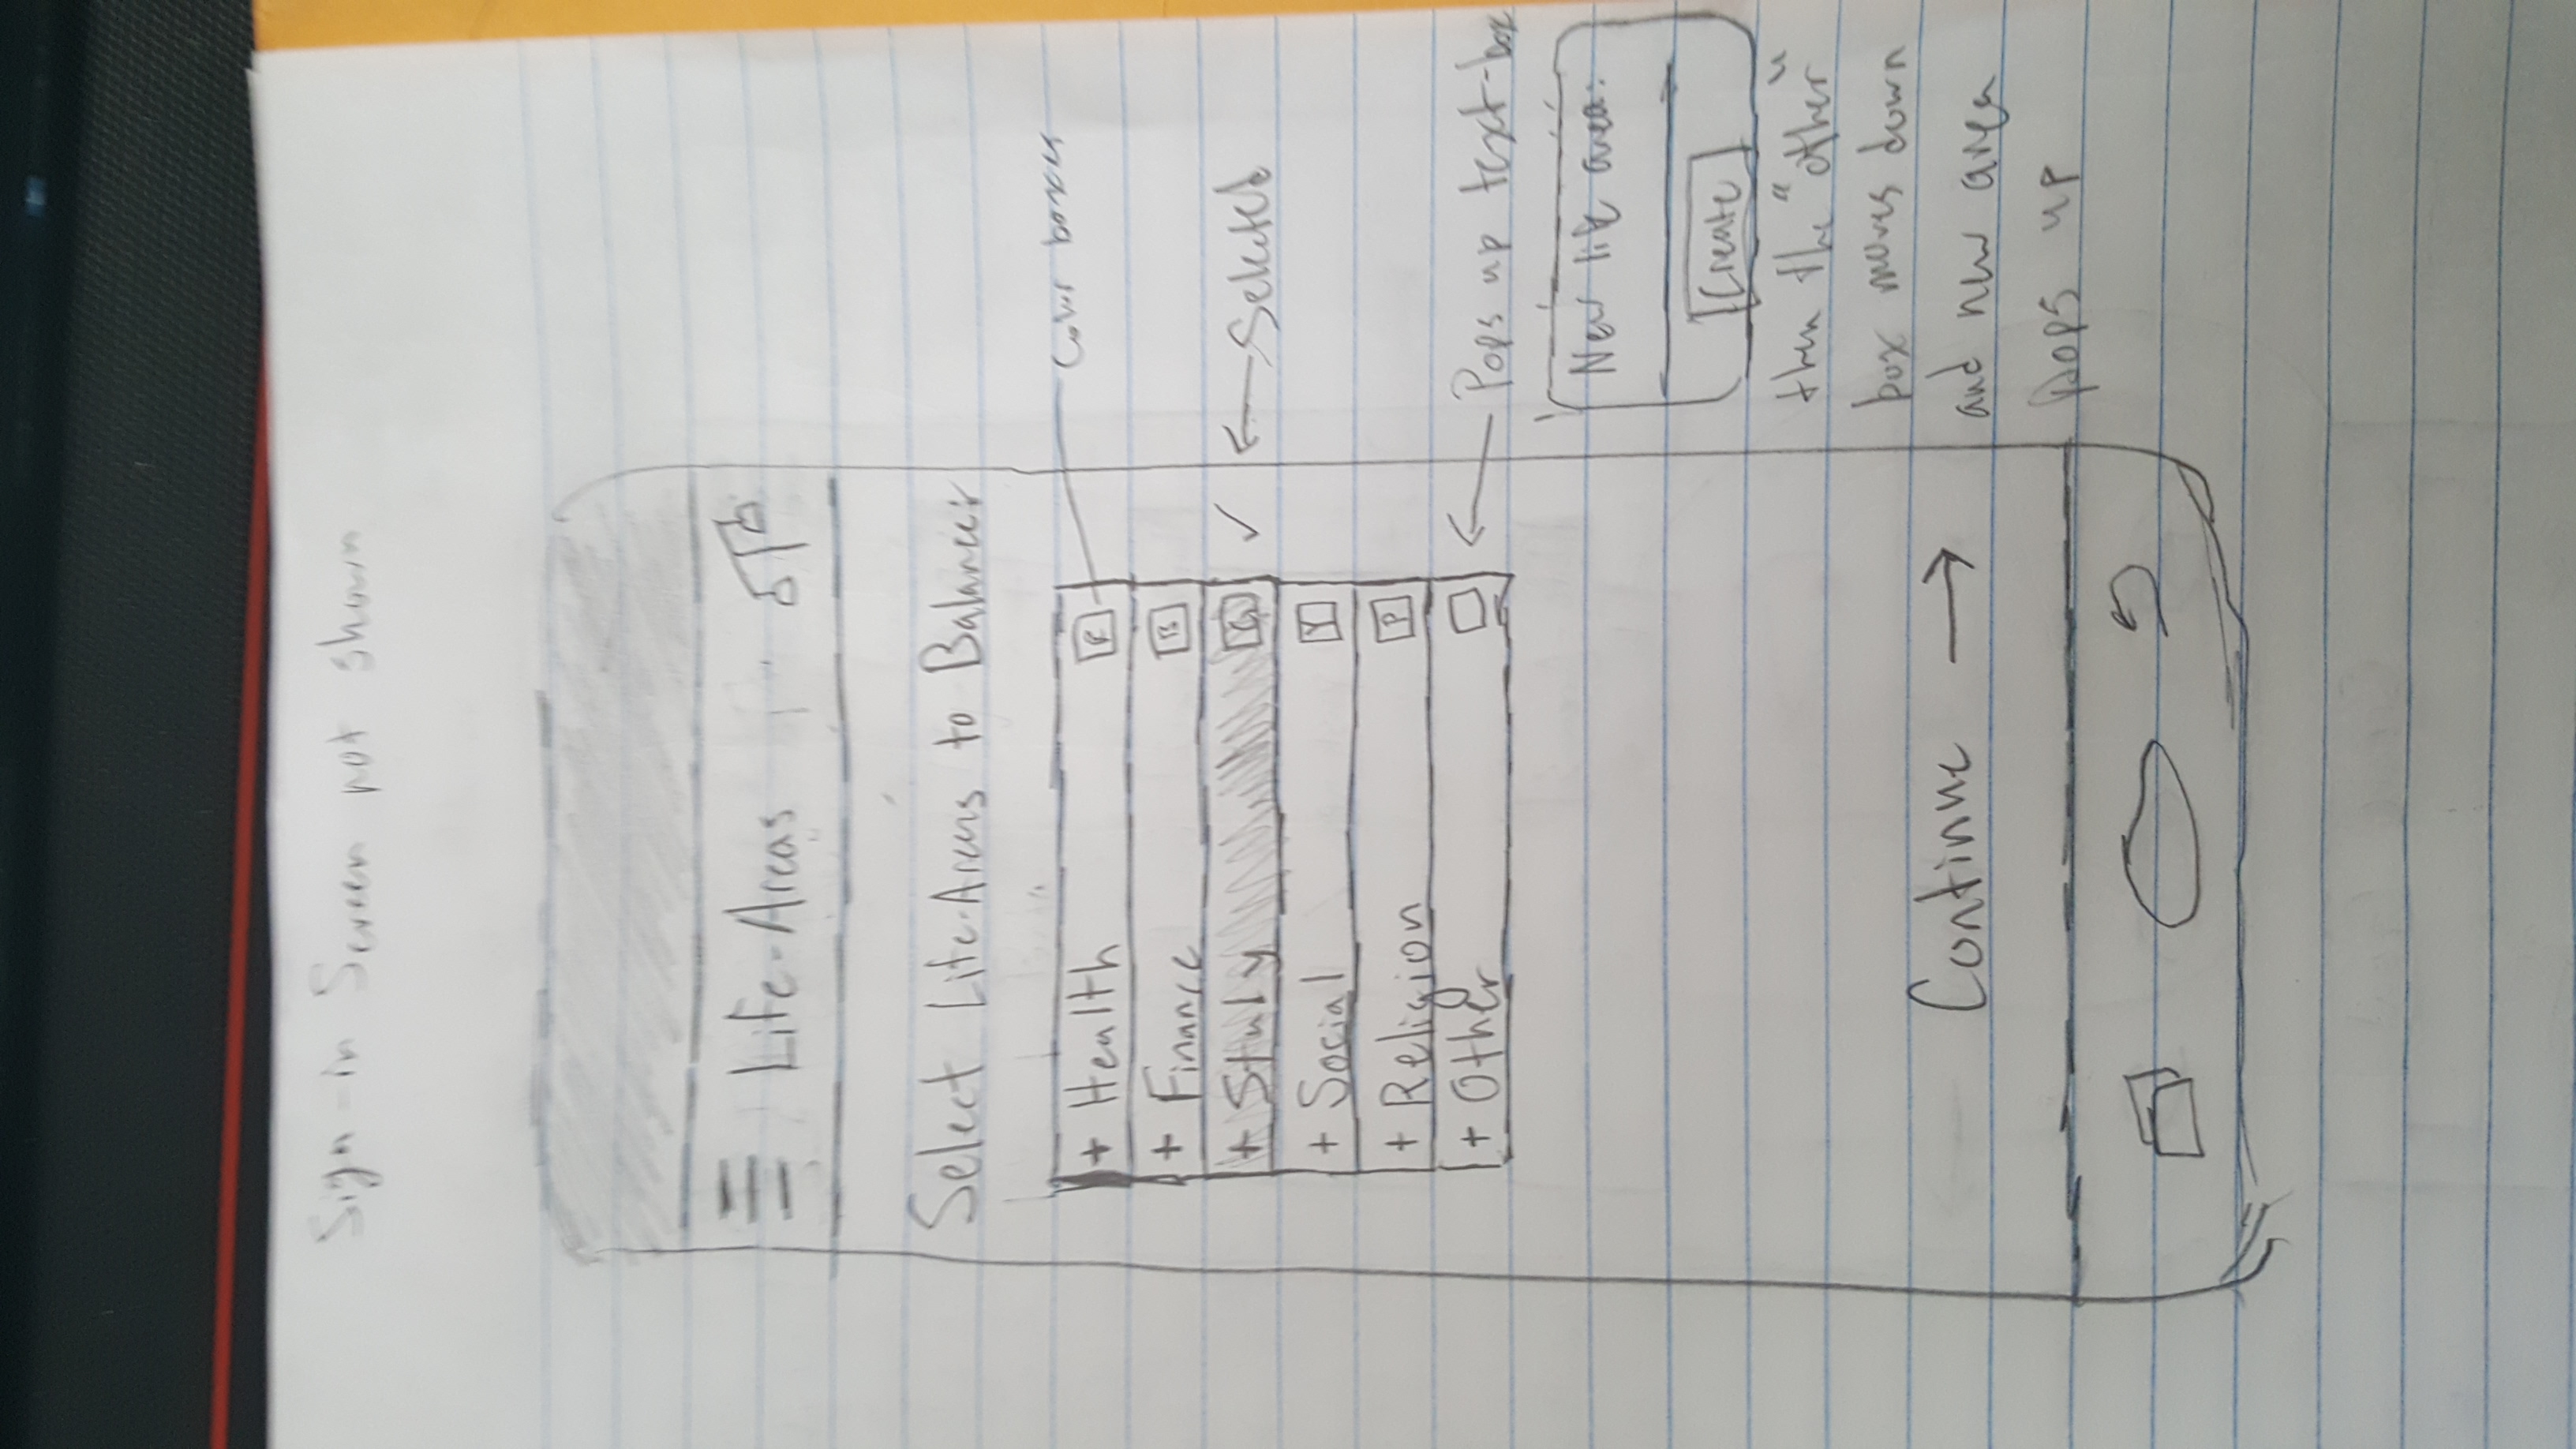 Sign-in Screen not shown
Life-Areas
Select Life-Areas to Balance:
+ Health R
Color boxes
+ Finance B
+ Study G ✓
Selected
+ Social Y
+ Religion P
+ Other
Pops up text-box
New life area:
Create
then the "other"
box moves down
and new area
pops up
Continue →